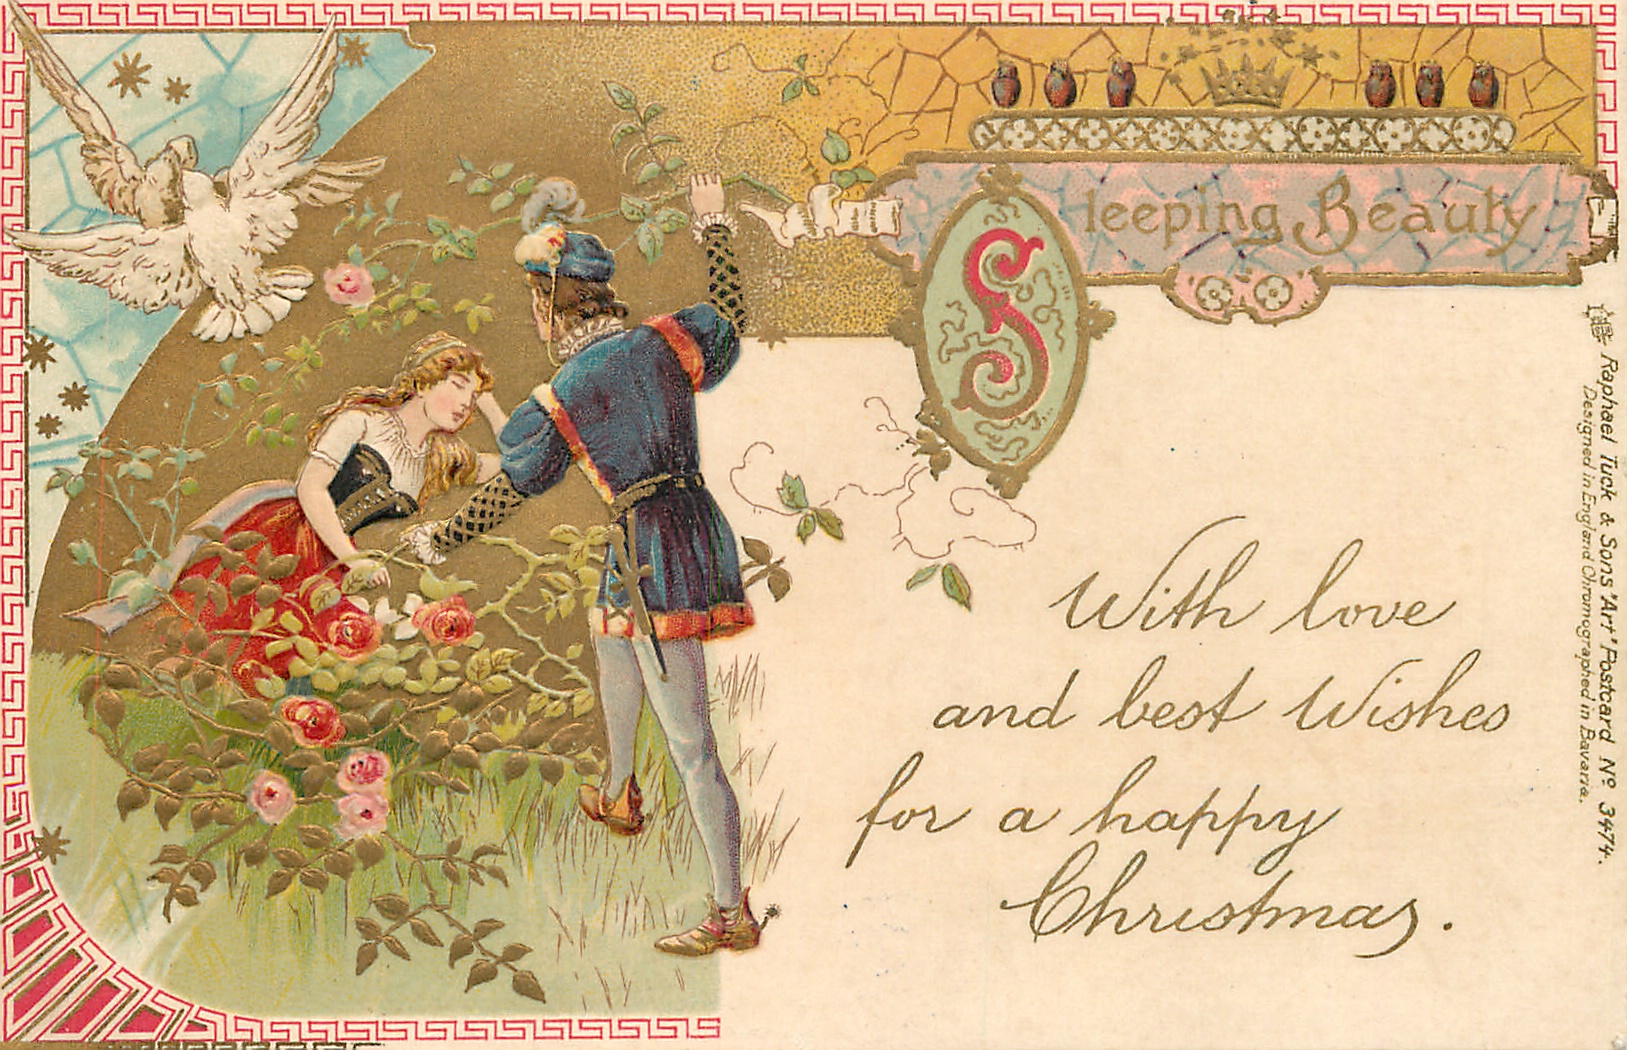 Sleeping Beauty
With love
and best Wishes
for a happy
Christmas.
Raphael Tuck & Sons "Art" Postcard Nº 3474.
Designed in England Chromographed in Bavaria.